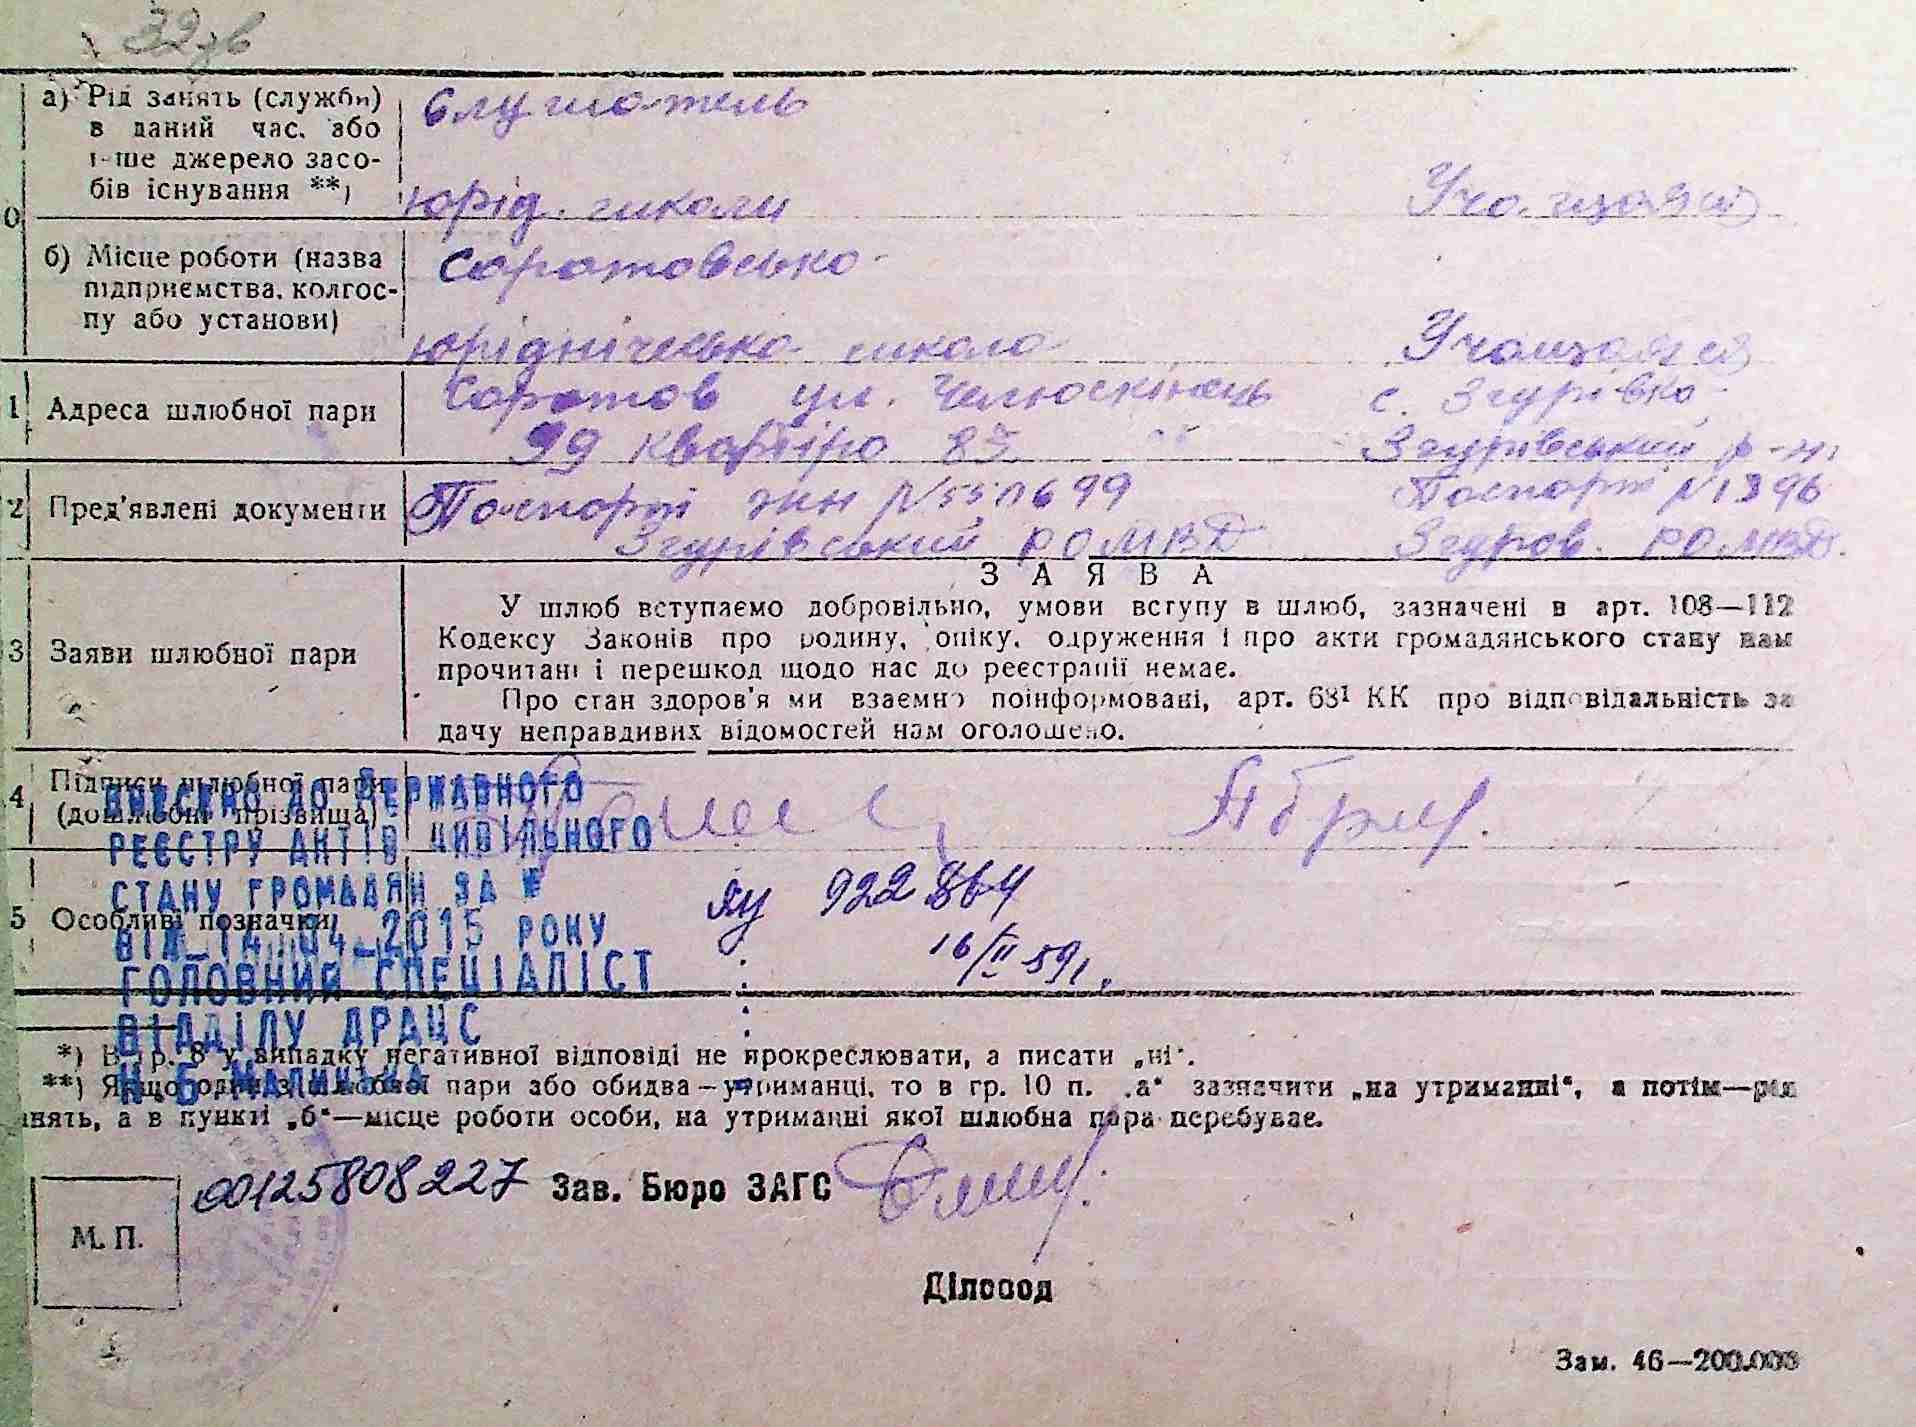 32 зв
а) Рід занять (служби) в даний час, або інше джерело засобів існування **)
Слушатель
юрід. школи Учащаяся
0
б) Місце роботи (назва підприємства, колгоспу або установи)
Саратовська
юріднічеська школа Учащаяся
1 Адреса шлюбної пари
Саратов ул. Челюскінець с. Згурівка
99 квартіра 83 Згурівський р-н
2 Пред'явлені документи
Паспорт № 550699 Паспорт № 1396
Згурівський РОМВД Згуров. РОМВД.
ЗАЯВА
3 Заяви шлюбної пари
У шлюб вступаємо добровільно, умови вступу в шлюб, зазначені в арт. 108—112
Кодексу Законів про родину, опіку, одруження і про акти громадянського стану нам
прочитані і перешкод щодо нас до реєстрації немає.
Про стан здоров'я ми взаємно поінформовані, арт. 68¹ КК про відповідальність за
дачу неправдивих відомостей нам оголошено.
4 Підписи шлюбної пари
(дошлюбні прізвища)
5 Особливі позначки
яу 922864
16/II 59 г.
ВНЕСЕНО ДО ДЕРЖАВНОГО
РЕЄСТРУ АКТІВ ЦИВІЛЬНОГО
СТАНУ ГРОМАДЯН ЗА №
ВІД 14.04.2015 РОКУ
ГОЛОВНИЙ СПЕЦІАЛІСТ
ВІДДІЛУ ДРАЦС
*) В гр. 8 у випадку негативної відповіді не прокреслювати, а писати „ні“.
**) Якщо один з шлюбної пари або обидва—утриманці, то в гр. 10 п. „а“ зазначити „на утриманні“, а потім—рід
нять, а в пункті „б“—місце роботи особи, на утриманні якої шлюбна пара перебуває.
00125808227 Зав. Бюро ЗАГС
М. П.
Діловод
Зам. 46—200.000